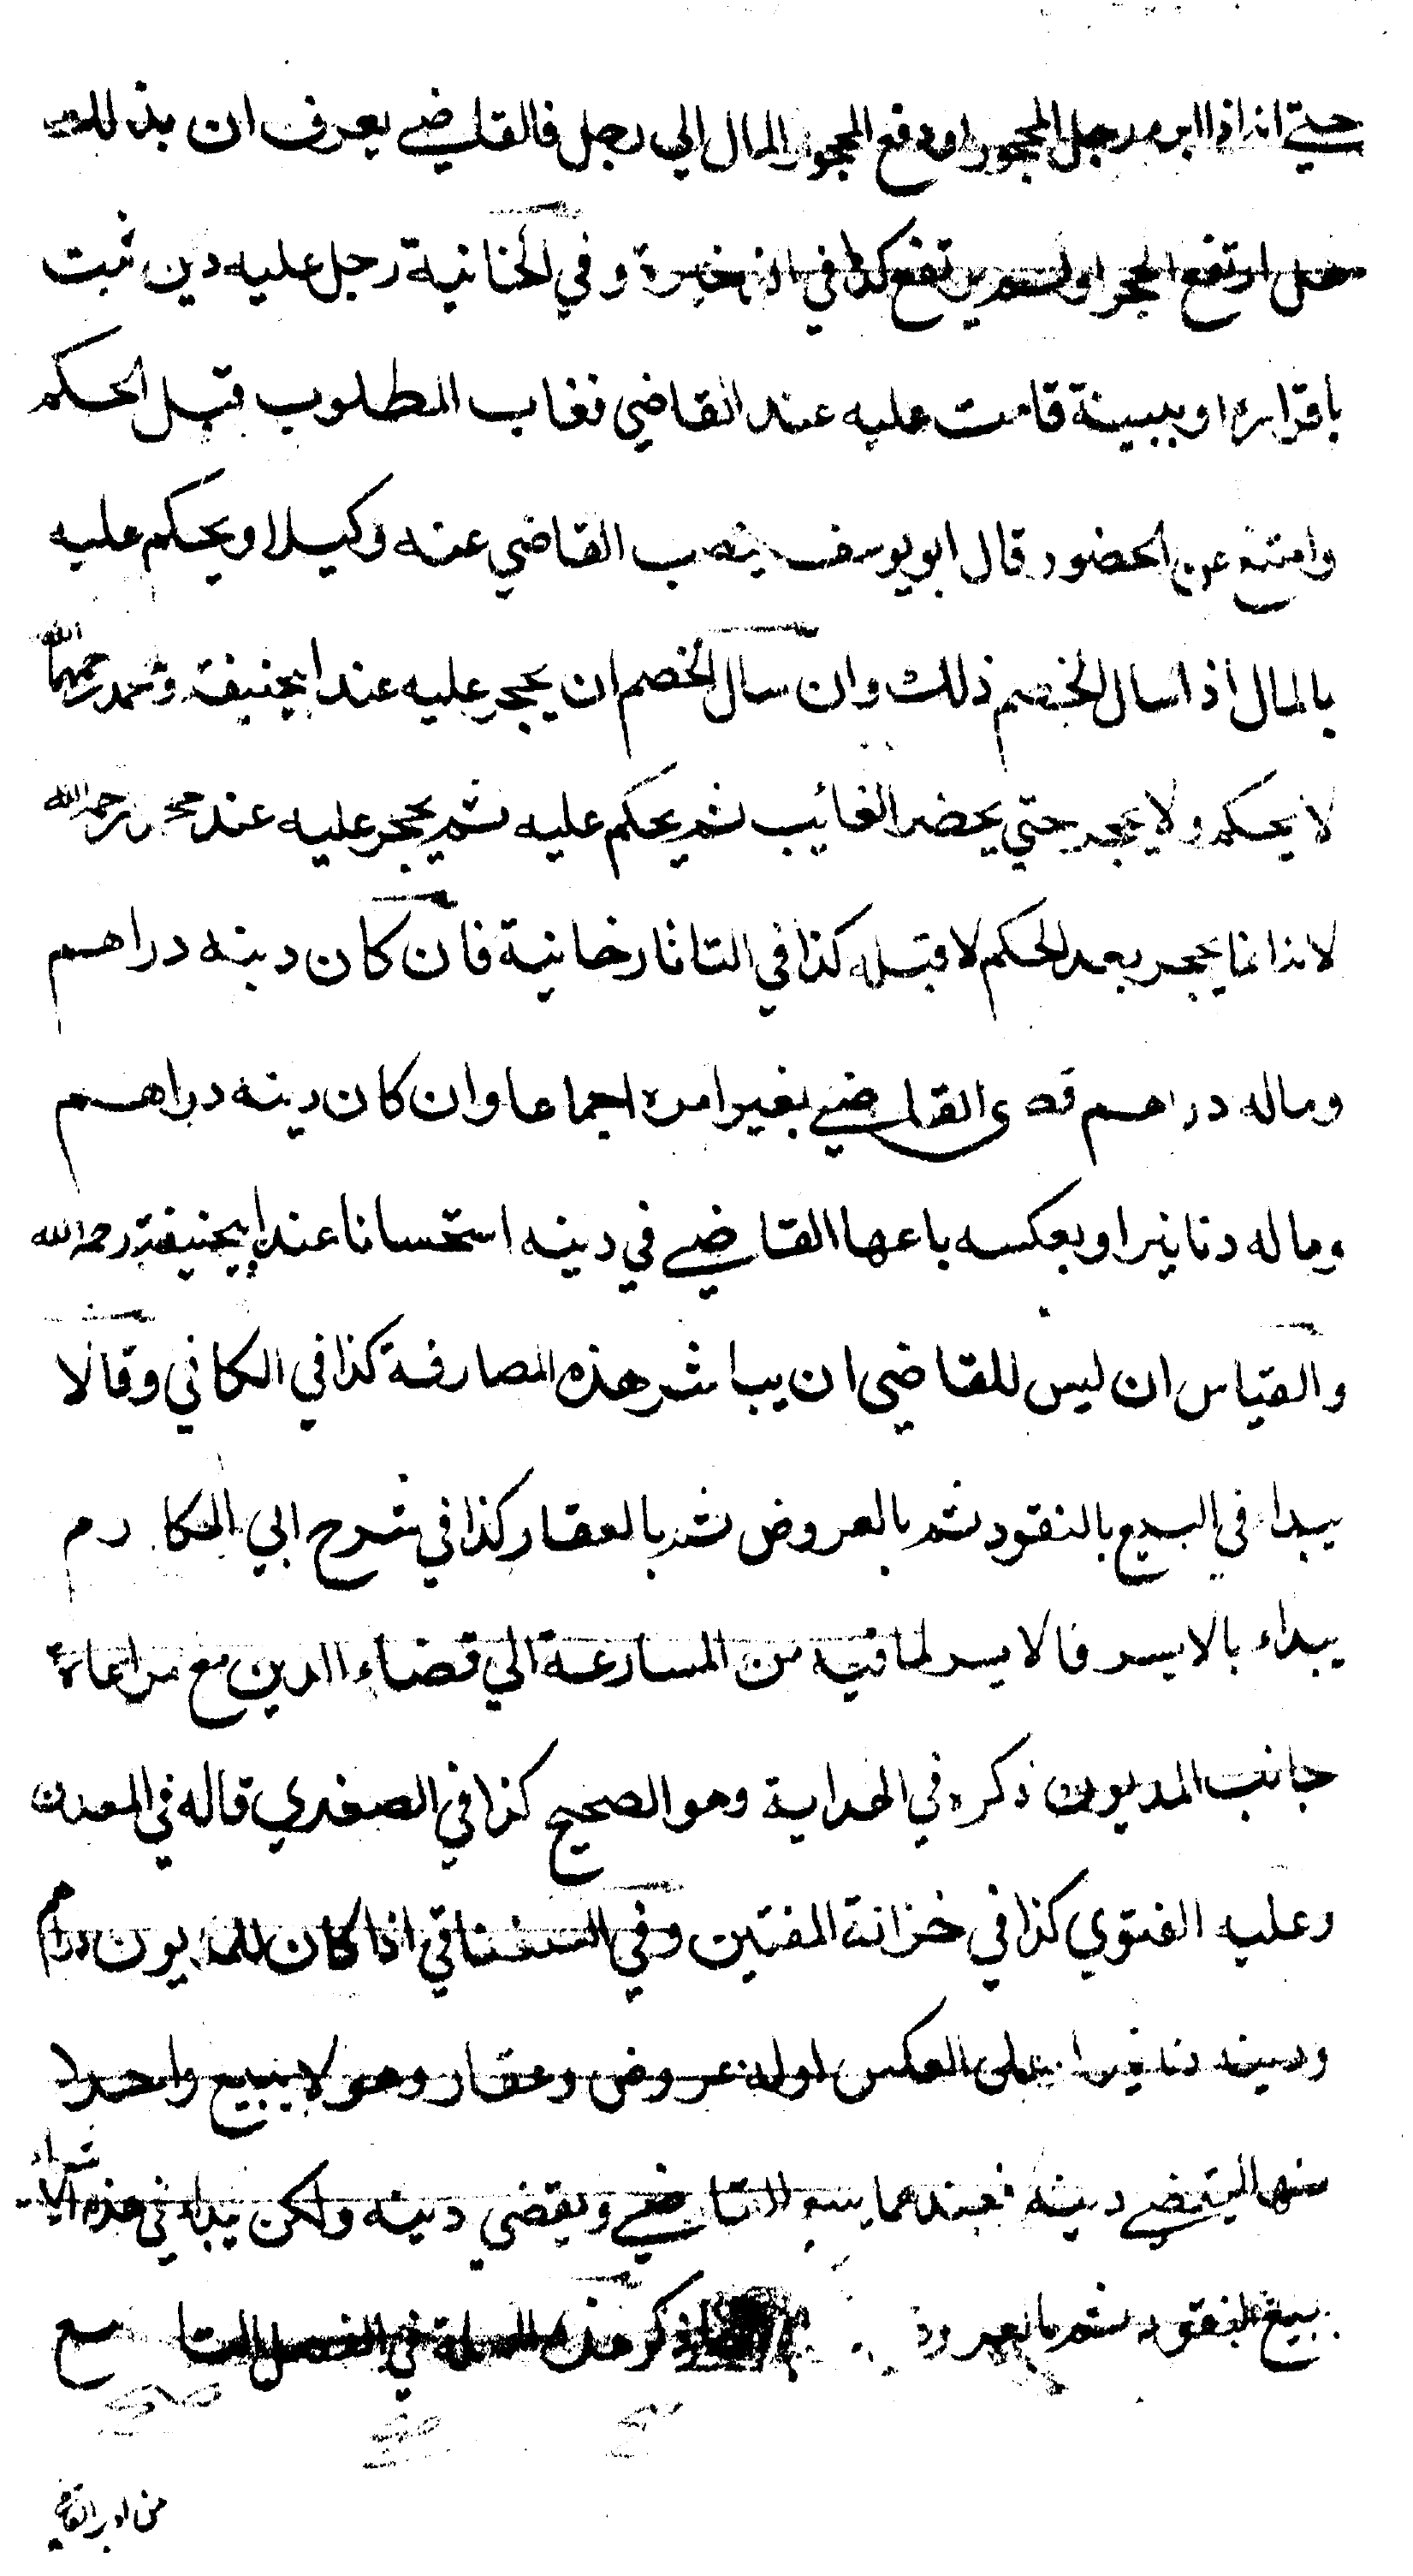 حتي انه اذا ابرم رجل المحجور او دفع المحجور المال الي رجل فالقاضي يعرف ان بذلك
هل ارتفع الحجر او لم يرتفع كذا في الذخيرة وفي الخانية رجل عليه دين ثبت
باقراره او ببينة قامت عليه عند القاضي فغاب المطلوب قبل الحكم
وامتنع عن الحضور قال ابو يوسف ينصب القاضي عنه وكيلا ويحكم عليه
بالمال اذا سال الخصم ذلك وان سال الخصم ان يحجر عليه عند ابيحنيفة ومحمد رحمهما الله
لا يحكم ولا يحجر حتي يحضر الغائب ثم يحكم عليه ثم يحجر عليه عند محمد رحمه الله
لانه انما يحجر بعد الحكم لا قبله كذا في التاتارخانية فان كان دينه دراهم
وماله دراهم قضى القاضي بغير امره اجماعا وان كان دينه دراهم
وماله دنانير او بعكسه باعها القاضي في دينه استحسانا عند ابيحنيفة رحمه الله
والقياس ان ليس للقاضي ان يباشر هذه المصارفة كذا في الكافي وقالا
يبداء في البيع بالنقود ثم بالعروض ثم بالعقار كذا في شرح ابي المكارم
يبداء بالايسر فالايسر لما فيه من المسارعة الي قضاء الدين مع مراعاة
جانب المديون ذكره في الهداية وهو الصحيح كذا في الصغدي قاله في المعدن
وعليه الفتوي كذا في خزانة المفتين وفي السغناقي اذا كان للمديون دراهم
ودينه دنانير او على العكس او له عروض وعقار وهو لا يبيع واحدا
منها ليقضي دينه فعندهما يبيع القاضي ويقضي دينه ولكن يبداء في هذه الاشياء
ببيع النقود ثم بالعروض ذكر هذه المسلة في الفصل التاسع
من ادب القاضي